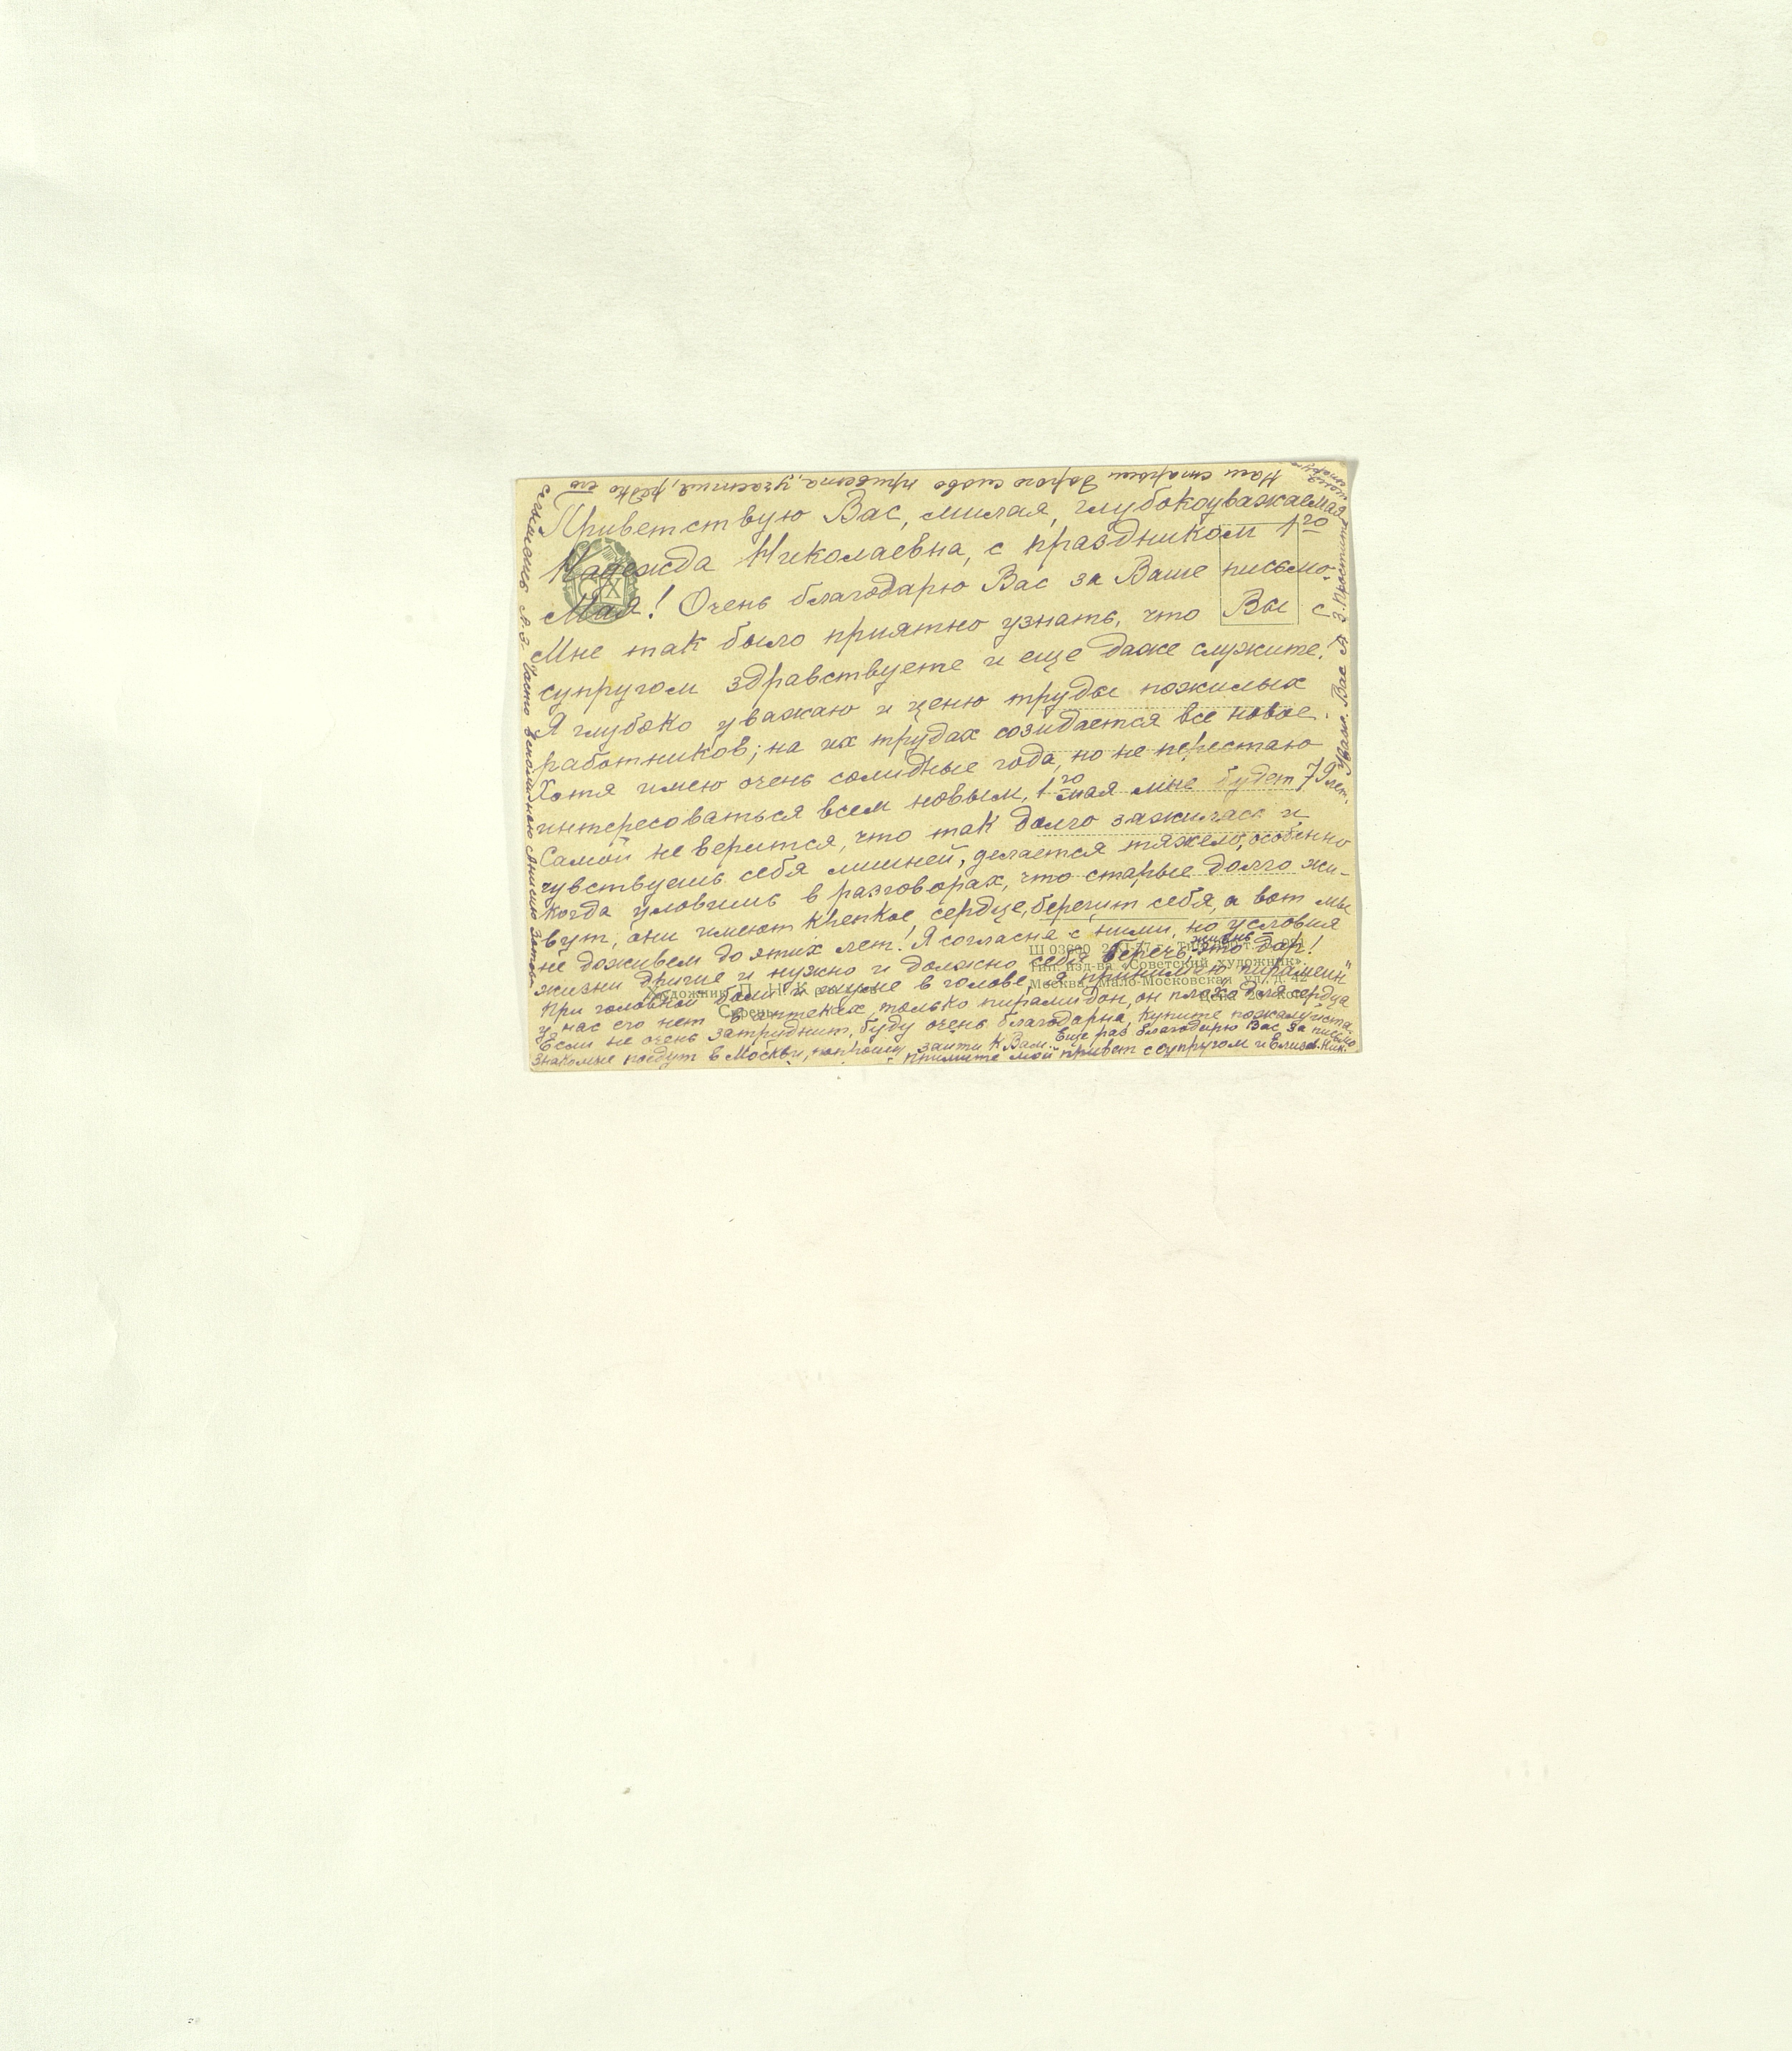 Приветствую Вас, милая, глубокоуважаемая
Надежда Николаевна, с праздником 1го
Мая! Очень благодарю Вас за Ваше письмо.
Мне так было приятно узнать, что Вы с
супругом здравствуете и еще даже служите!
Я глубоко уважаю и ценю труды пожилых
работников; на их трудах созидается все новое.
Хотя имею очень солидные года, но не перестаю
интересоваться всем новым, 1го мая мне будет 79 лет.
Самой не верится, что так долго зажилась и
чувствуешь себя лишней, делается тяжело, особенно
когда уловишь в разговорах, что старые долго жи-
вут, они имеют крепкое сердце, берегут себя, а вот мы
не доживем до этих лет! Я согласна с ними, но условия
жизни другие и нужно и должно себя беречь, жизнь это дар!
При головной боли и шуме в голове, я принимаю
у нас его нет в аптеках, только пирамидон, он плохо для сердца
Если не очень затруднит, буду очень благодарна, купите пожалуйста.
Знакомые поедут в Москву, попрошу зайти к Вам. Еще раз благодарю Вас за письмо
примите мой привет с супругом и Елизав. Ник.
Уваж. Вас А З. Простите
Нам старым дорого слово привета, участия, редко его
слышишь А. З. Часто вспоминаю
Ш 03690
Тип. изд-ва «Советский художник».
Москва, Мало-Московская ул.
Художник П. Н.
Цена